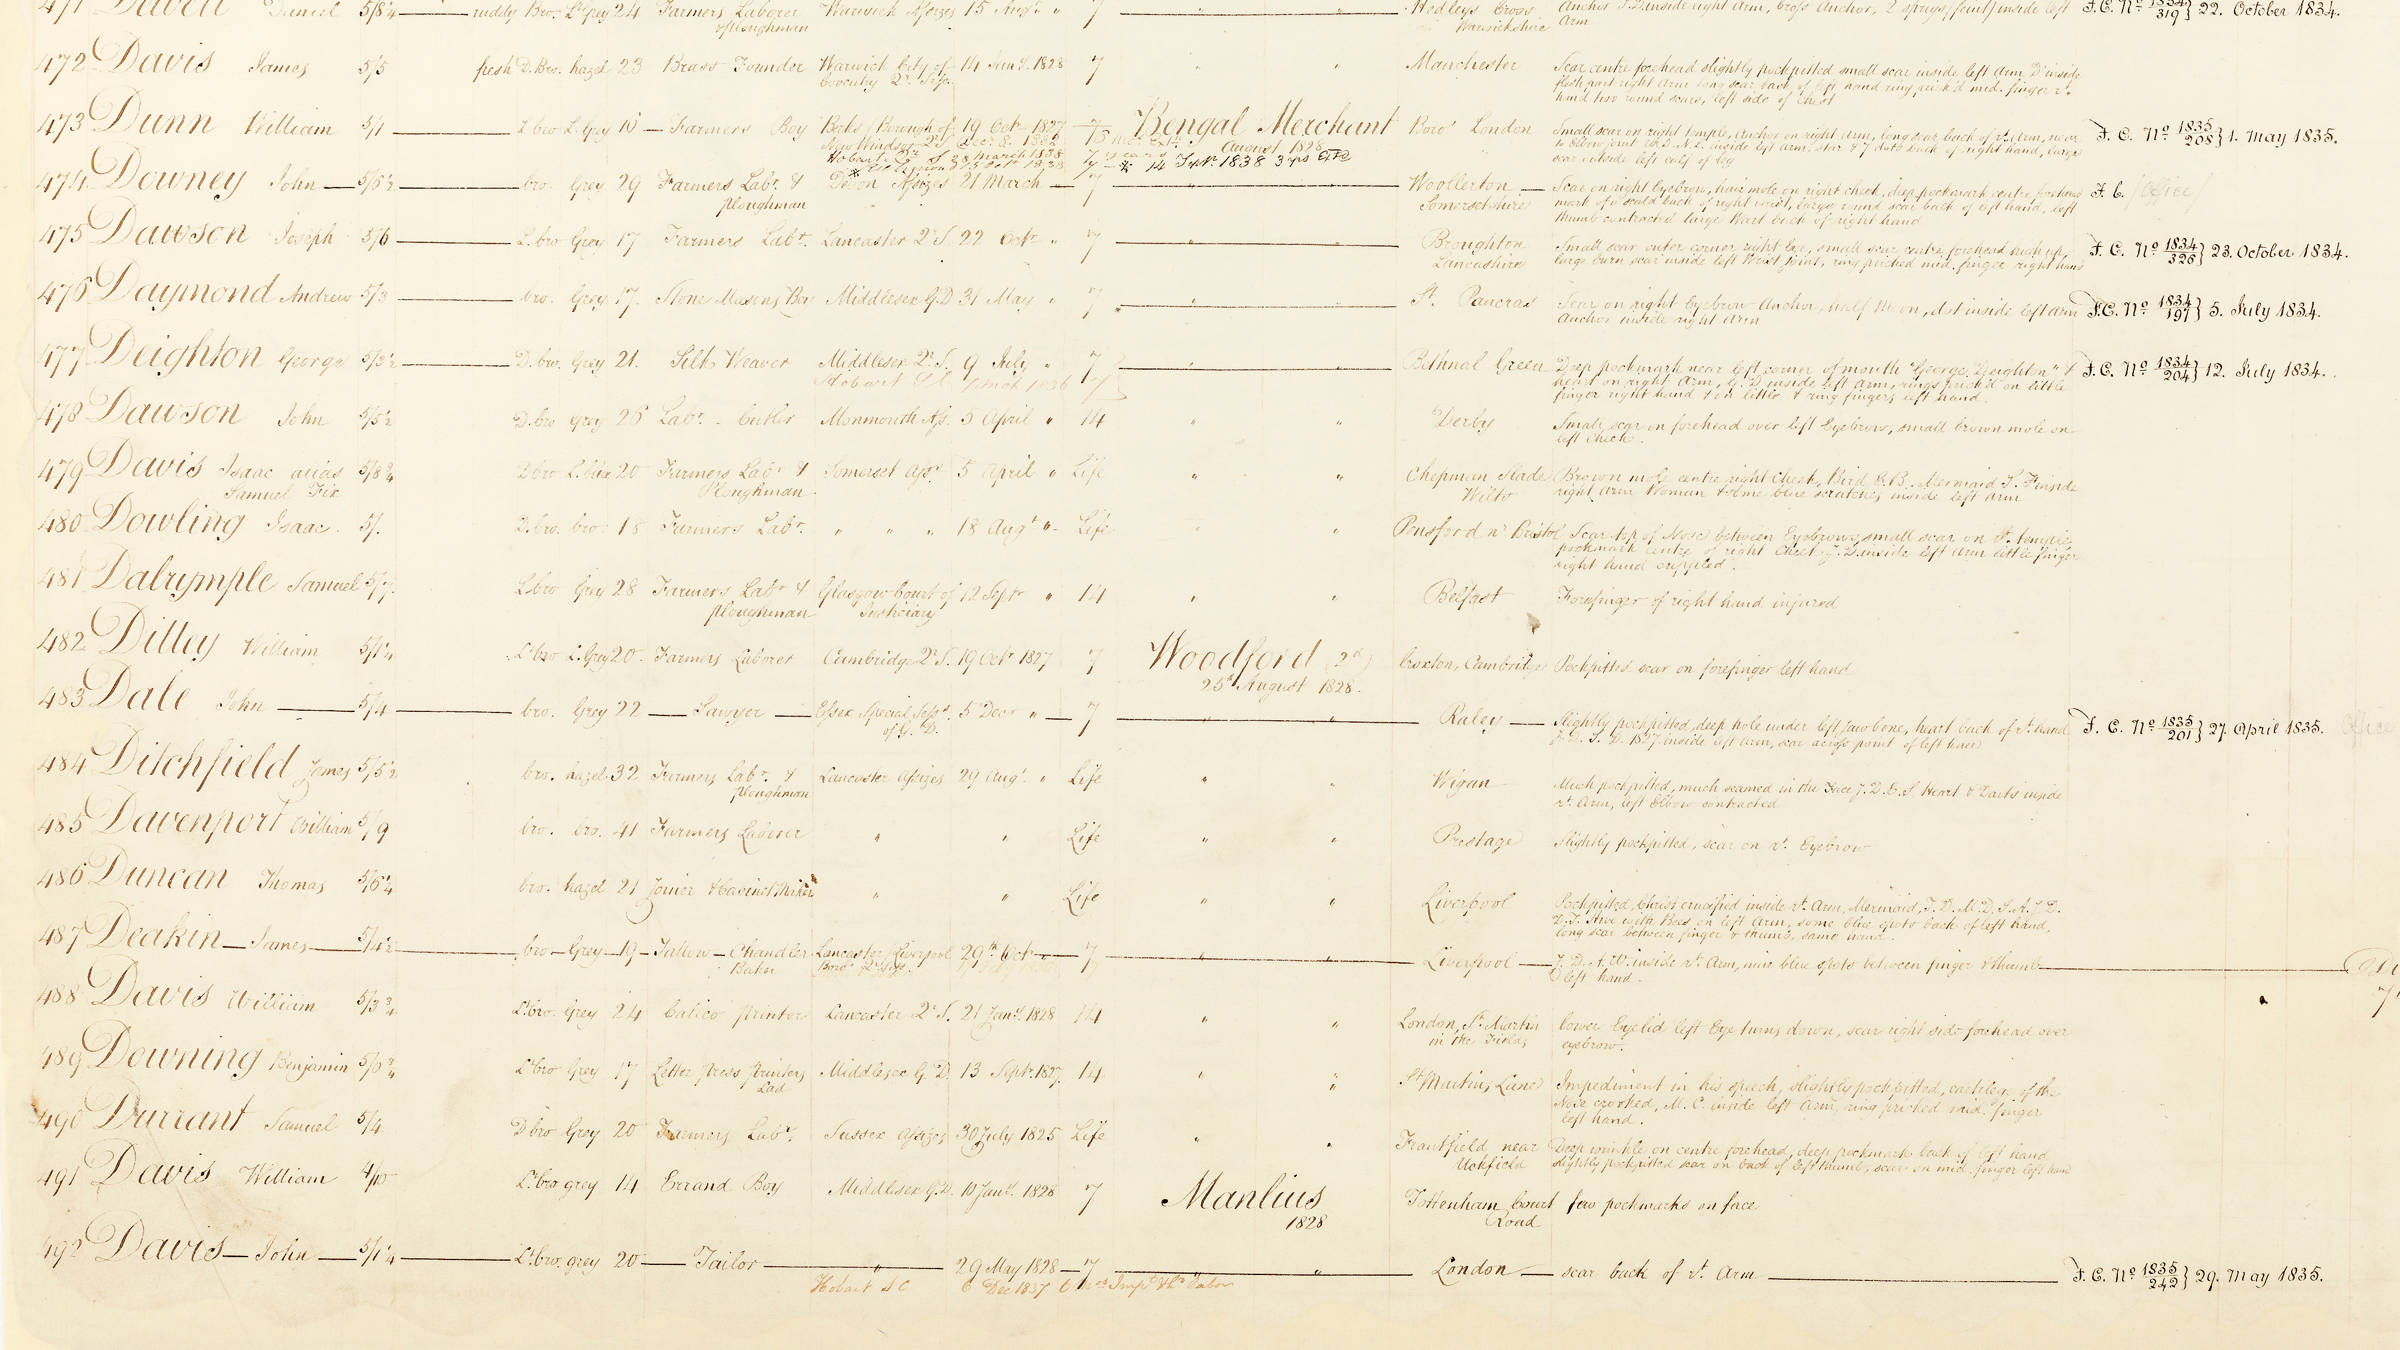 471 Daniel 5/8¼ ruddy Bro. Lt Grey 24 Farmers Laborer Warwick Assizes 15 Augt. " 7 " " Medleys Cross Anchor J.D. inside right arm, cross anchor, 2 sprigs (faint) inside left F.C. No 1834/319} 22. October 1834.
& Ploughman Warwickshire Arm
472 Davis James 5/5 fresh D.Bro. hazel 23 Brass Founder Warwick City of 14 Jany. 1828 7 " " Manchester Scar centre forehead slightly pockpitted small scar inside left arm, D inside
Coventry 2r. Sess. flesh part right arm long scar back of left hand ring prick'd mid. finger rt.
hand two round scars, left side of chest
473 Dunn William 5/1 L bro L. Grey 16 Farmers Boy Berks (Borough of 19 Octr 1827 7 Bengal Merchant Boro' London Small scar on right temple, anchor on right arm, long scar back of rt. arm, near F. C. No 1835/208} 1. May 1835.
New Windsor August 1828 to elbow joint W.D.N.L. inside left arm star & 7 dots back of right hand, large
Hobart 28 March 1838 14 Septr. 1838 3 yrs scar outside left calf of leg
474 Downey John 5/6½ bro. Grey 29 Farmers Labr. & Devon Assizes 21 March 7 " " Woollerton Scar on right Eyebrow, hair mole on right cheek, deep pockmark centre forehead F. C. (Office)
Ploughman Somersetshire mark of a scald back of right wrist, large round scar back of left hand, left
thumb contracted large Wart back of right hand
475 Dawson Joseph 5/6 L. bro Grey 17 Farmers Labr. Lancaster 2r S. 22 Octr. " 7 " " Broughton Small scar outer corner right Eye, small scar centre forehead high up, F. C. No 1834/326} 23. October 1834.
Lancashire large burn scar inside left Wrist joint, ring pricked mid. finger right hand
476 Daymond Andrew 5/3 bro. Grey 17. Stone Masons Boy Middlesex G.D 31 May " 7 " " St. Pancras Scar on right Eyebrow Anchor, half Moon, dot inside left arm F.C. No 1834/197} 5. July 1834.
Anchor inside right Arm
477 Deighton George 5/3½ D. bro. Grey 21. Silk Weaver Middlesex 2r. S. 9 July " 7 " " Bethnal Green Deep pockmark near left corner of mouth "George Deighton" & F. C. No 1834/204} 12. July 1834.
Hobart heart on right Arm, G. D inside left arm, rings prick'd on little
finger right hand & on little & ring fingers left hand
478 Dawson John 5/5½ D. bro Grey 26 Labr. - Cutler Monmouth Ass. 5 April " 14 " " Derby Small scar on forehead over left Eyebrow, small brown mole on
left Cheek.
479 Davis Isaac alias 5/8¾ D bro L. blue 20 Farmers Labr & Somerset Assr. 5 April " Life " " Chepman Slade Brown mole centre right Cheek, Bird &c B. Mermaid S. F inside
Samuel Fix Ploughman Wilts right arm Woman & some blue scratches inside left arm
480 Dowling Isaac. 5/. D. bro. bro. 18 Farmers Labr. " " " 18 Augt " Life " " Pensford nr. Bristol Scar top of Nose between Eyebrows, small scar on rt. temple,
pockmark centre of right Cheek, I. D. inside left arm little finger
right hand crippled.
481 Dalrymple Samuel 5/7. L bro Grey 28 Farmers Labr & Glasgow Court of 12 Septr " 14 " " Belfast Forefinger of right hand injured
Ploughman Justiciary
482 Dilley William 5/1¼ Lt bro L. Grey 20. Farmers Laborer Cambridge 2r S. 19 Octr 1827 7 Woodford (2d) Croxton, Cambridge Pockpitted scar on forefinger left hand
25th August 1828.
483 Dale John 5/4 bro. Grey 22 Sawyer Essex Special Sessn. 5 Decr " 7 " " Raley Slightly pockpitted, deep hole under left Jaw bone, heart back of rt. hand F. C. No 1835/201} 27. April 1835.
of G. D. J. D. S. D. 1827 inside left Arm, scar across point of left knee
484 Ditchfield James 5/5½ bro. hazel 32 Farmers Labr. & Lancaster Assizes 29 Augt. " Life " " Wigan Much pockpitted, much seamed in the Face J. D. E. S Heart & Darts inside
Ploughman rt. Arm, left Elbow contracted
485 Davenport William 5/9 bro. bro. 41 Farmers Laborer " " Life " " Prestage Slightly pockpitted, scar on rt. Eyebrow
486 Duncan Thomas 5/6¼ bro. hazel 21 Joiner & Cabinet Maker " " Life " " Liverpool Pockpitted, Christ crucified inside rt. Arm, Mermaid, T. D. M. D. S. A. J. D.
with Bees on left Arm, some blue spots back of left hand,
long scar between finger & thumb, same hand.
487 Deakin James 5/4½ bro Grey 19 Tallow Chandler Lancaster (Liverpool 29th Octr 7 " " Liverpool J. D. A. W. inside rt. Arm, nine blue spots between finger & thumb
Baker Boro' 2r Sess. left hand.
488 Davis William 5/3¾ Lt. bro. Grey 24 Calico Printer Lancaster 2r S. 21 Jany. 1828 14 " " London, St. Martin lower Eyelid left Eye turns down, scar right side forehead over
in the Fields eyebrow.
489 Downing Benjamin 5/0¾ Lt. bro Grey 17 Letter Press Printers Middlesex G. D. 13 Septr. 1827. 14 " " St Martins Lane Impediment in his speech, slightly pockpitted, cartilege of the
Lad Nose crooked, M. C. inside left Arm, ring pricked mid. finger
left hand.
490 Durrant Samuel 5/4 D bro Grey 20 Farmers Labr. Sussex Assizes 30 July 1825 Life " " Frantfield near Deep wrinkle on centre forehead, deep pockmark back of left hand
Uckfield slightly pockpitted scar on back of left thumb, scar on mid. finger left hand
491 Davis William 4/10 Lt. bro grey 14 Errand Boy Middlesex G.D. 10 Jany. 1828 7 Manlius Tottenham Court few pockmarks on face
1828 Road
492 Davis John 5/1¼ Lt. bro. grey 20 Tailor " 29 May 1828 7 " " London scar back of rt. Arm F. C. No 1835/242} 29. May 1835.
Hobart S C 6 Dec 1837 6 mos Impt & Hd Labor